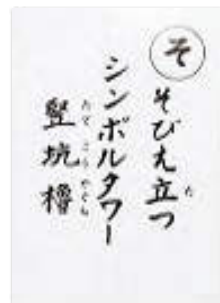 そ
そびえ立つ
シンボルタワー
竪坑櫓